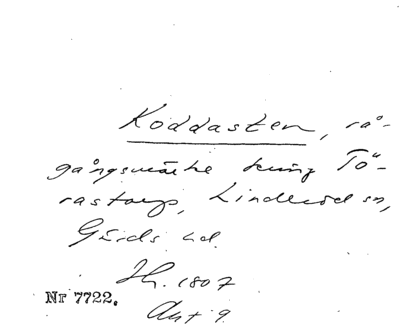 Koddasten, rå-
gångsmärke kring Tö-
rastorp, Linderöd sn,
Gärds hd.
Jh. 1807
Nr 7722.
Akt 9.